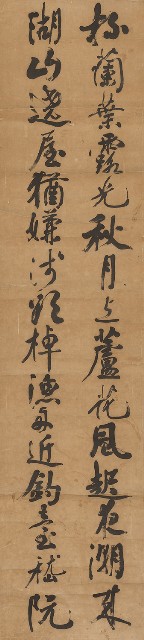 蘭葉露光秋月上蘆花風起夜潮來
湖山遶屋猶嫌淺欲棹漁舟近釣臺嵇阮